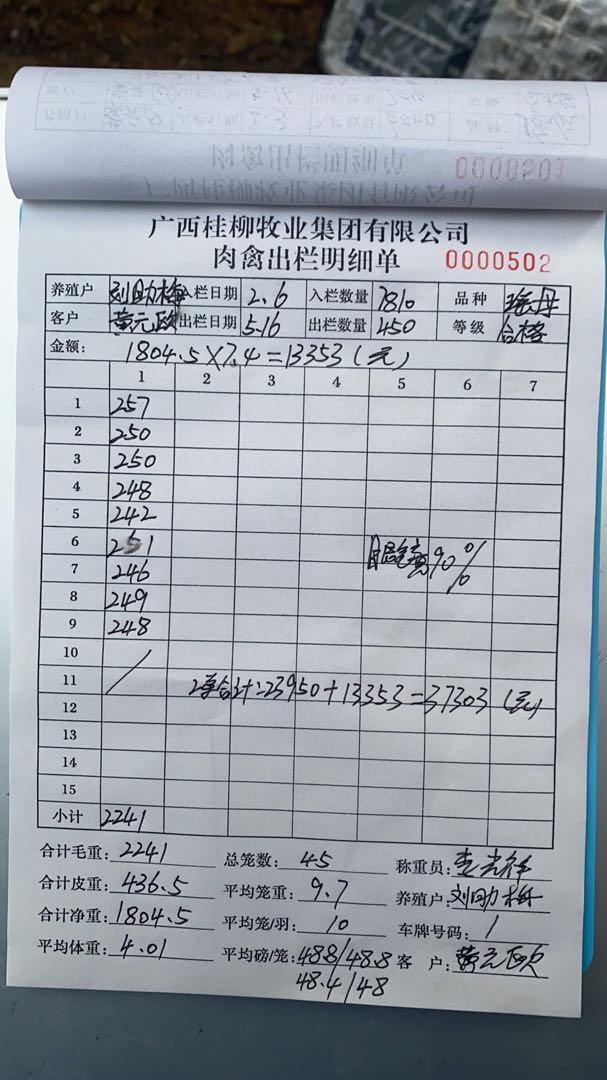 0000501
广西桂柳牧业集团有限公司
肉禽出栏明细单 0000502
养殖户 刘助梅 入栏日期 2.6 入栏数量 7810 品种
客户 黄元欧 出栏日期 5.16 出栏数量 450 等级 合格
金额: 1804.5×7.4=13353(元)
1 2 3 4 5 6 7
1 257
2 250
3 250
4 248
5 242
6 251 90%
7 246
8 249
9 248
10 /
11 2单合计:23950+13353=37303(元)
12
13
14
15
小计 2241
合计毛重: 2241 总笼数: 45 称重员:
合计皮重: 436.5 平均笼重: 9.7 养殖户: 刘助梅
合计净重: 1804.5 平均笼/羽: 10 车牌号码: 1
平均体重: 4.01 平均磅/笼: 48.8/48.8 客 户: 黄元欧
48.4/48